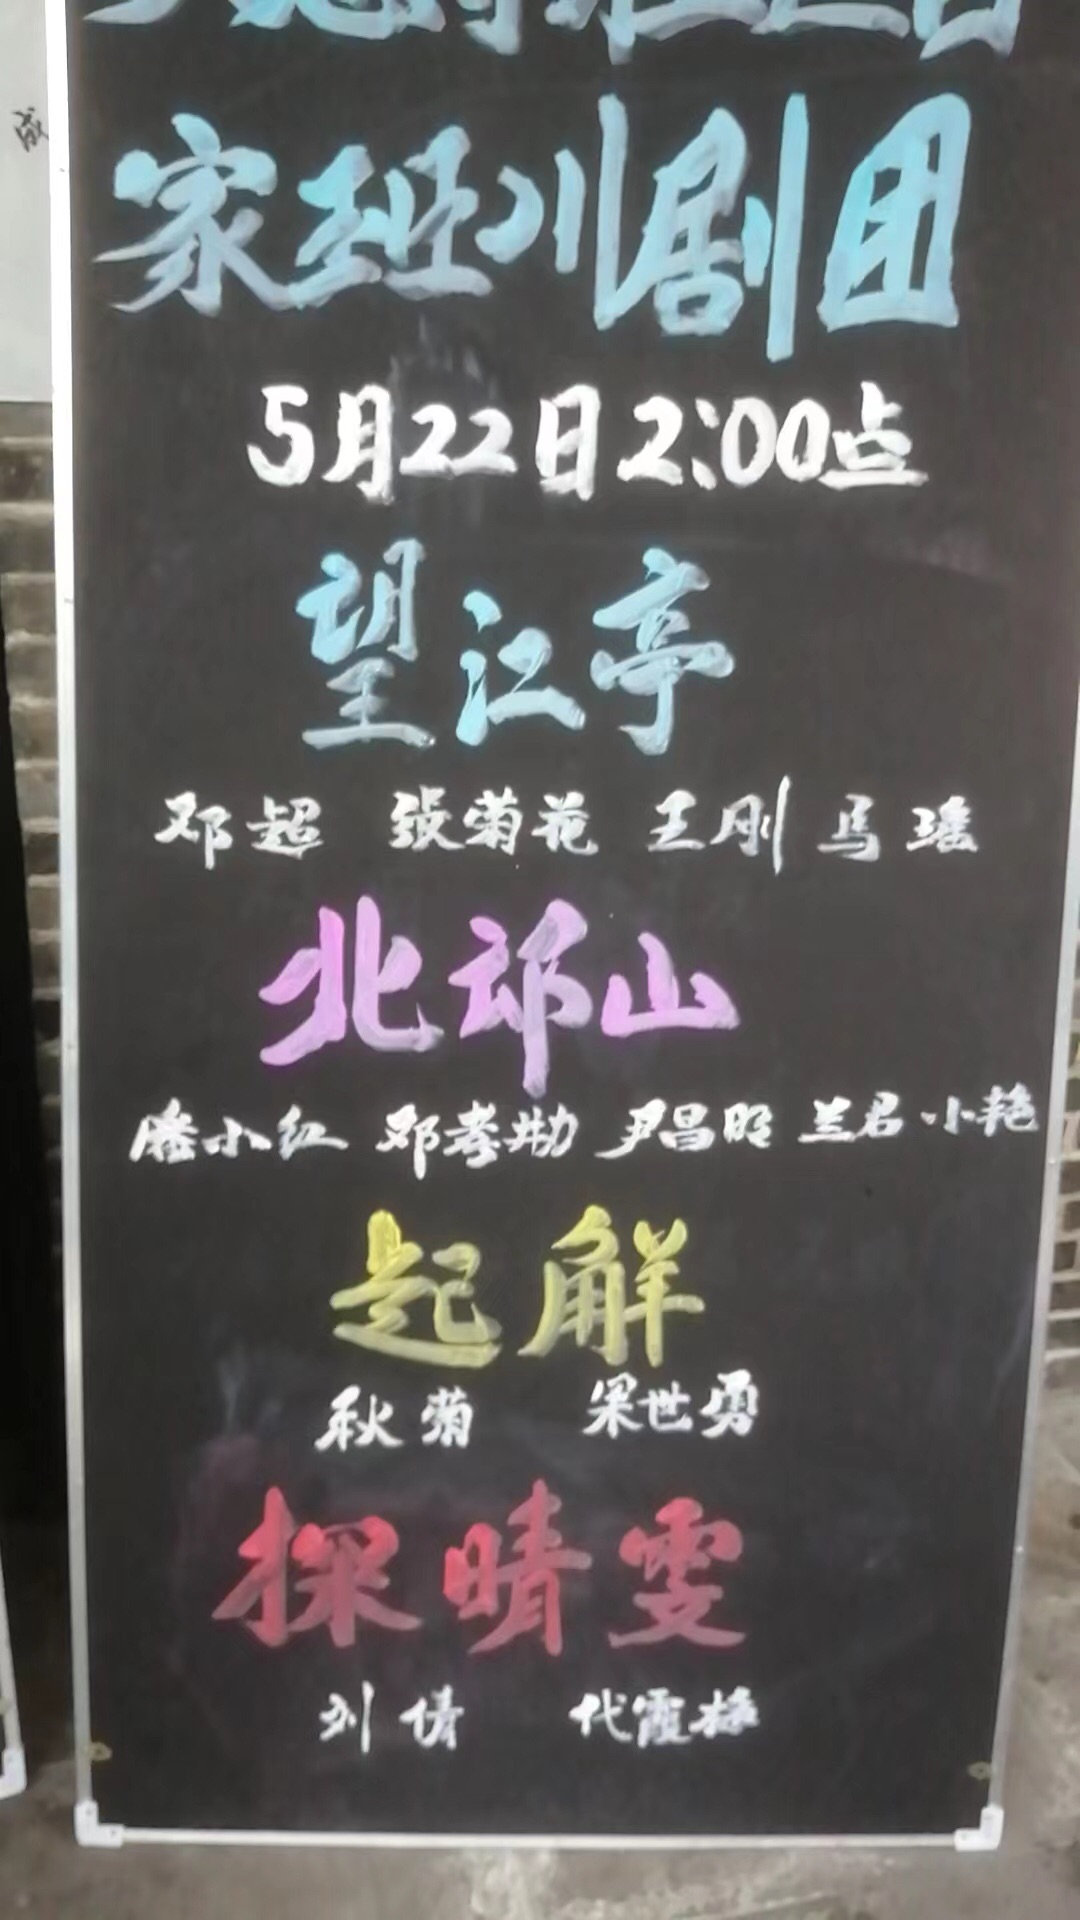 家班川剧团
5月22日2:00点
望江亭
邓超 张菊花 王刚 马瑶
北邙山
小红 邓孝勋 尹昌明 兰君 小艳
起解
秋菊 梁世勇
探晴雯
刘倩 代霞梅
成